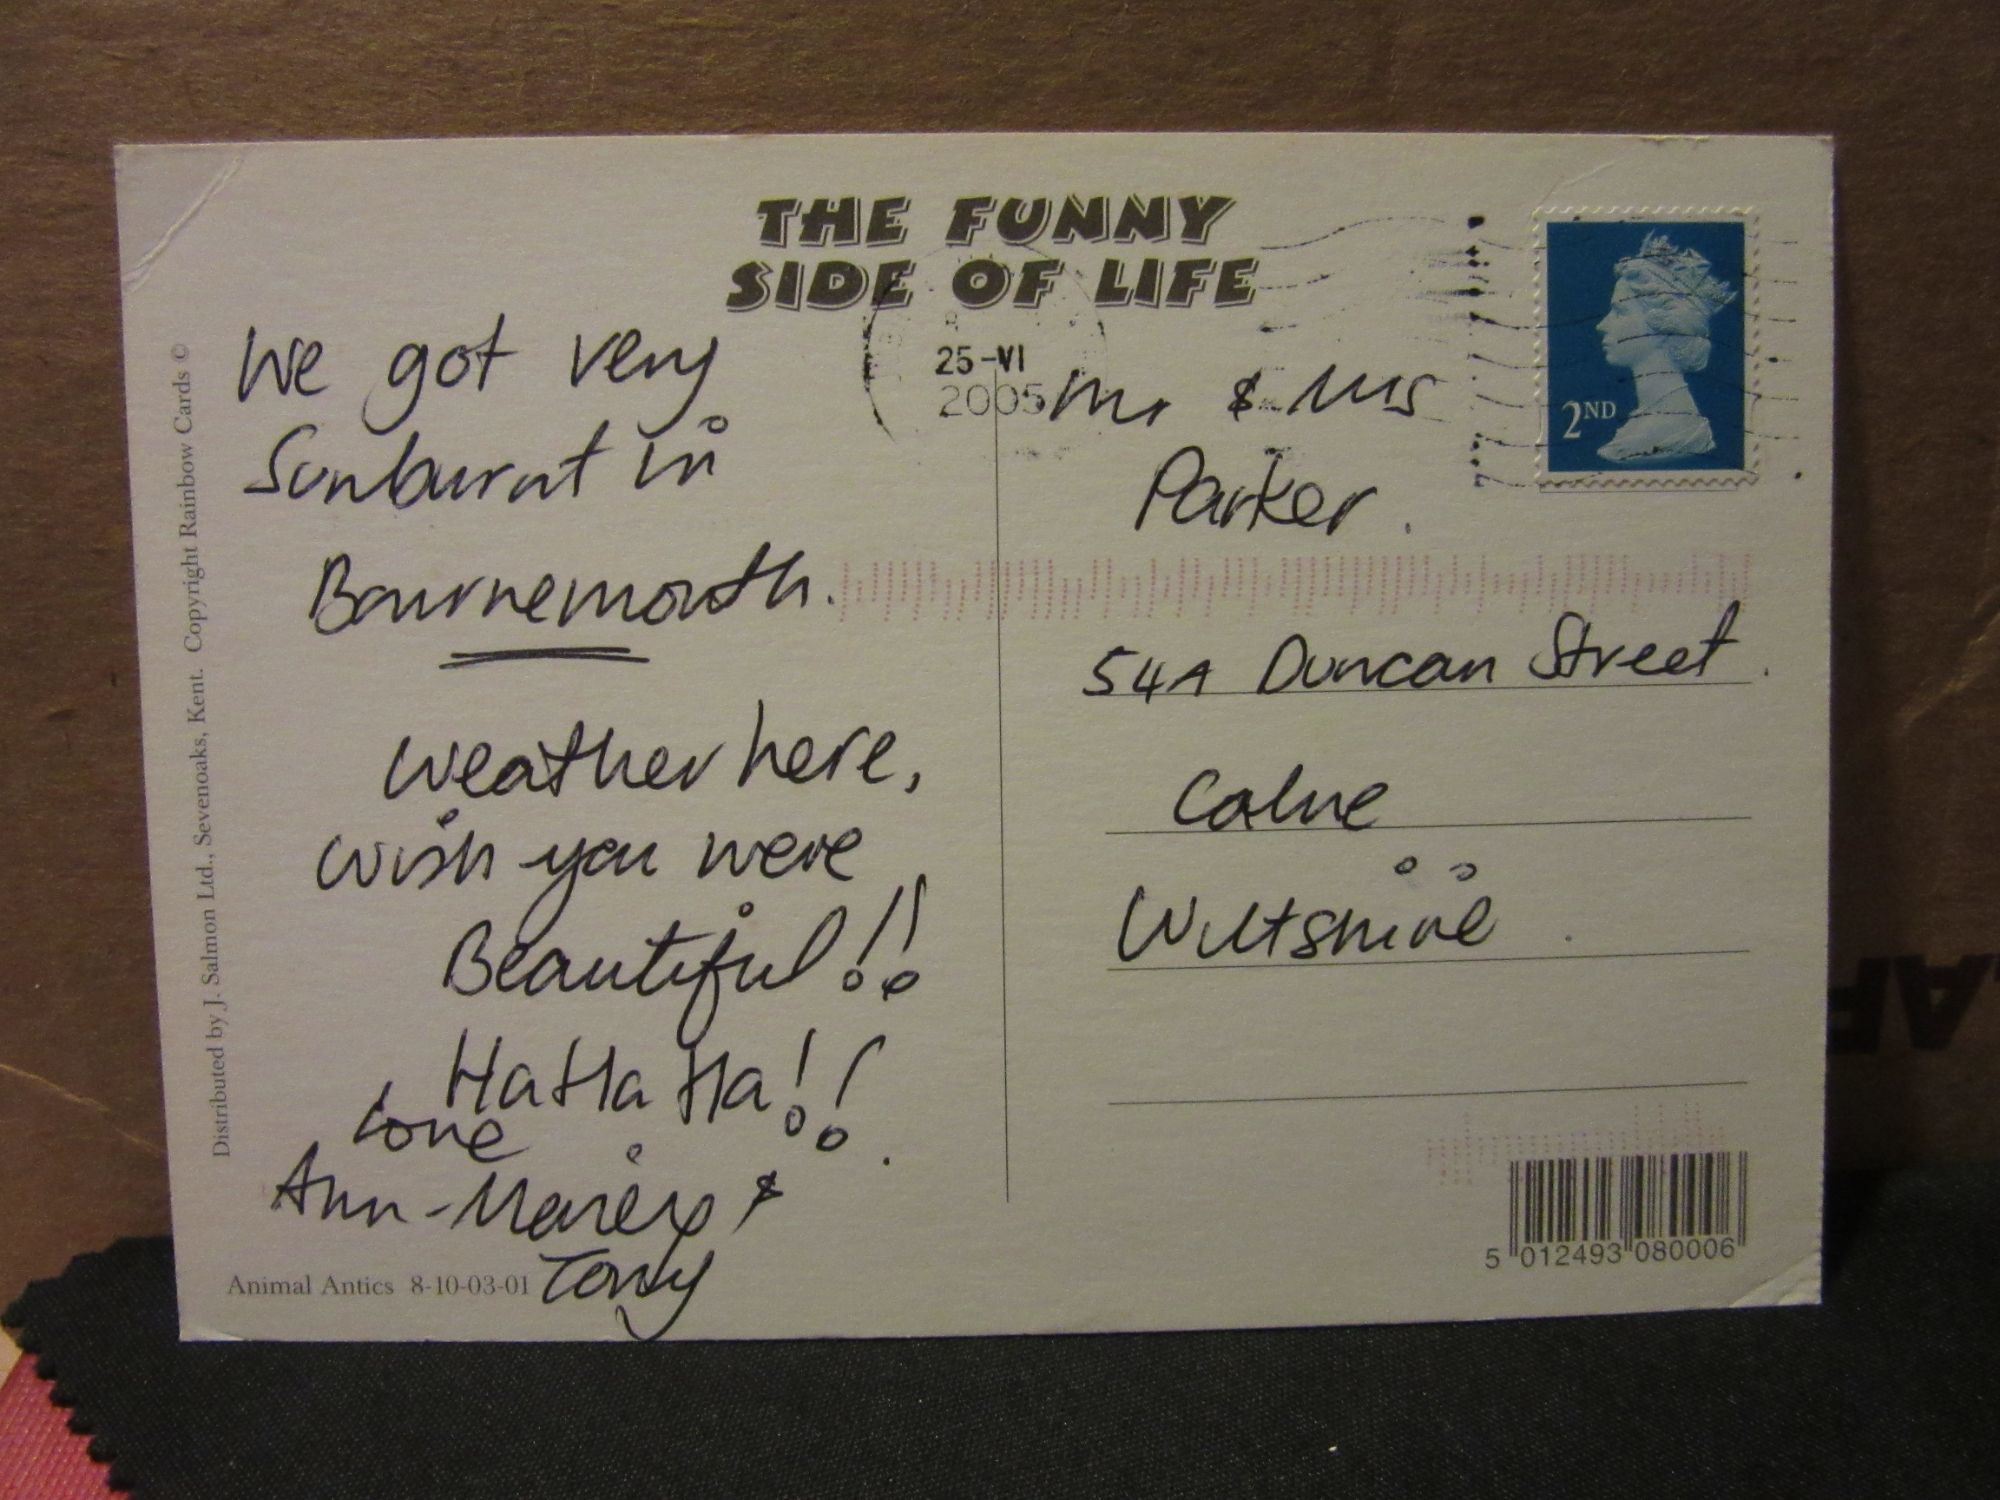 THE FUNNY
SIDE OF LIFE
We got very
Sunburnt in
Bournemouth.
Weather here,
wish you were
Beautiful!!
Ha Ha Ha!!
Love
Ann-Marie x &
Tony
25-VI
2005
2ND
Mr & Mrs
Parker.
54A Duncan Street.
Calne
Wiltshire.
Distributed by J. Salmon Ltd., Sevenoaks, Kent. Copyright Rainbow Cards ©
Animal Antics 8-10-03-01
5 012493 080006